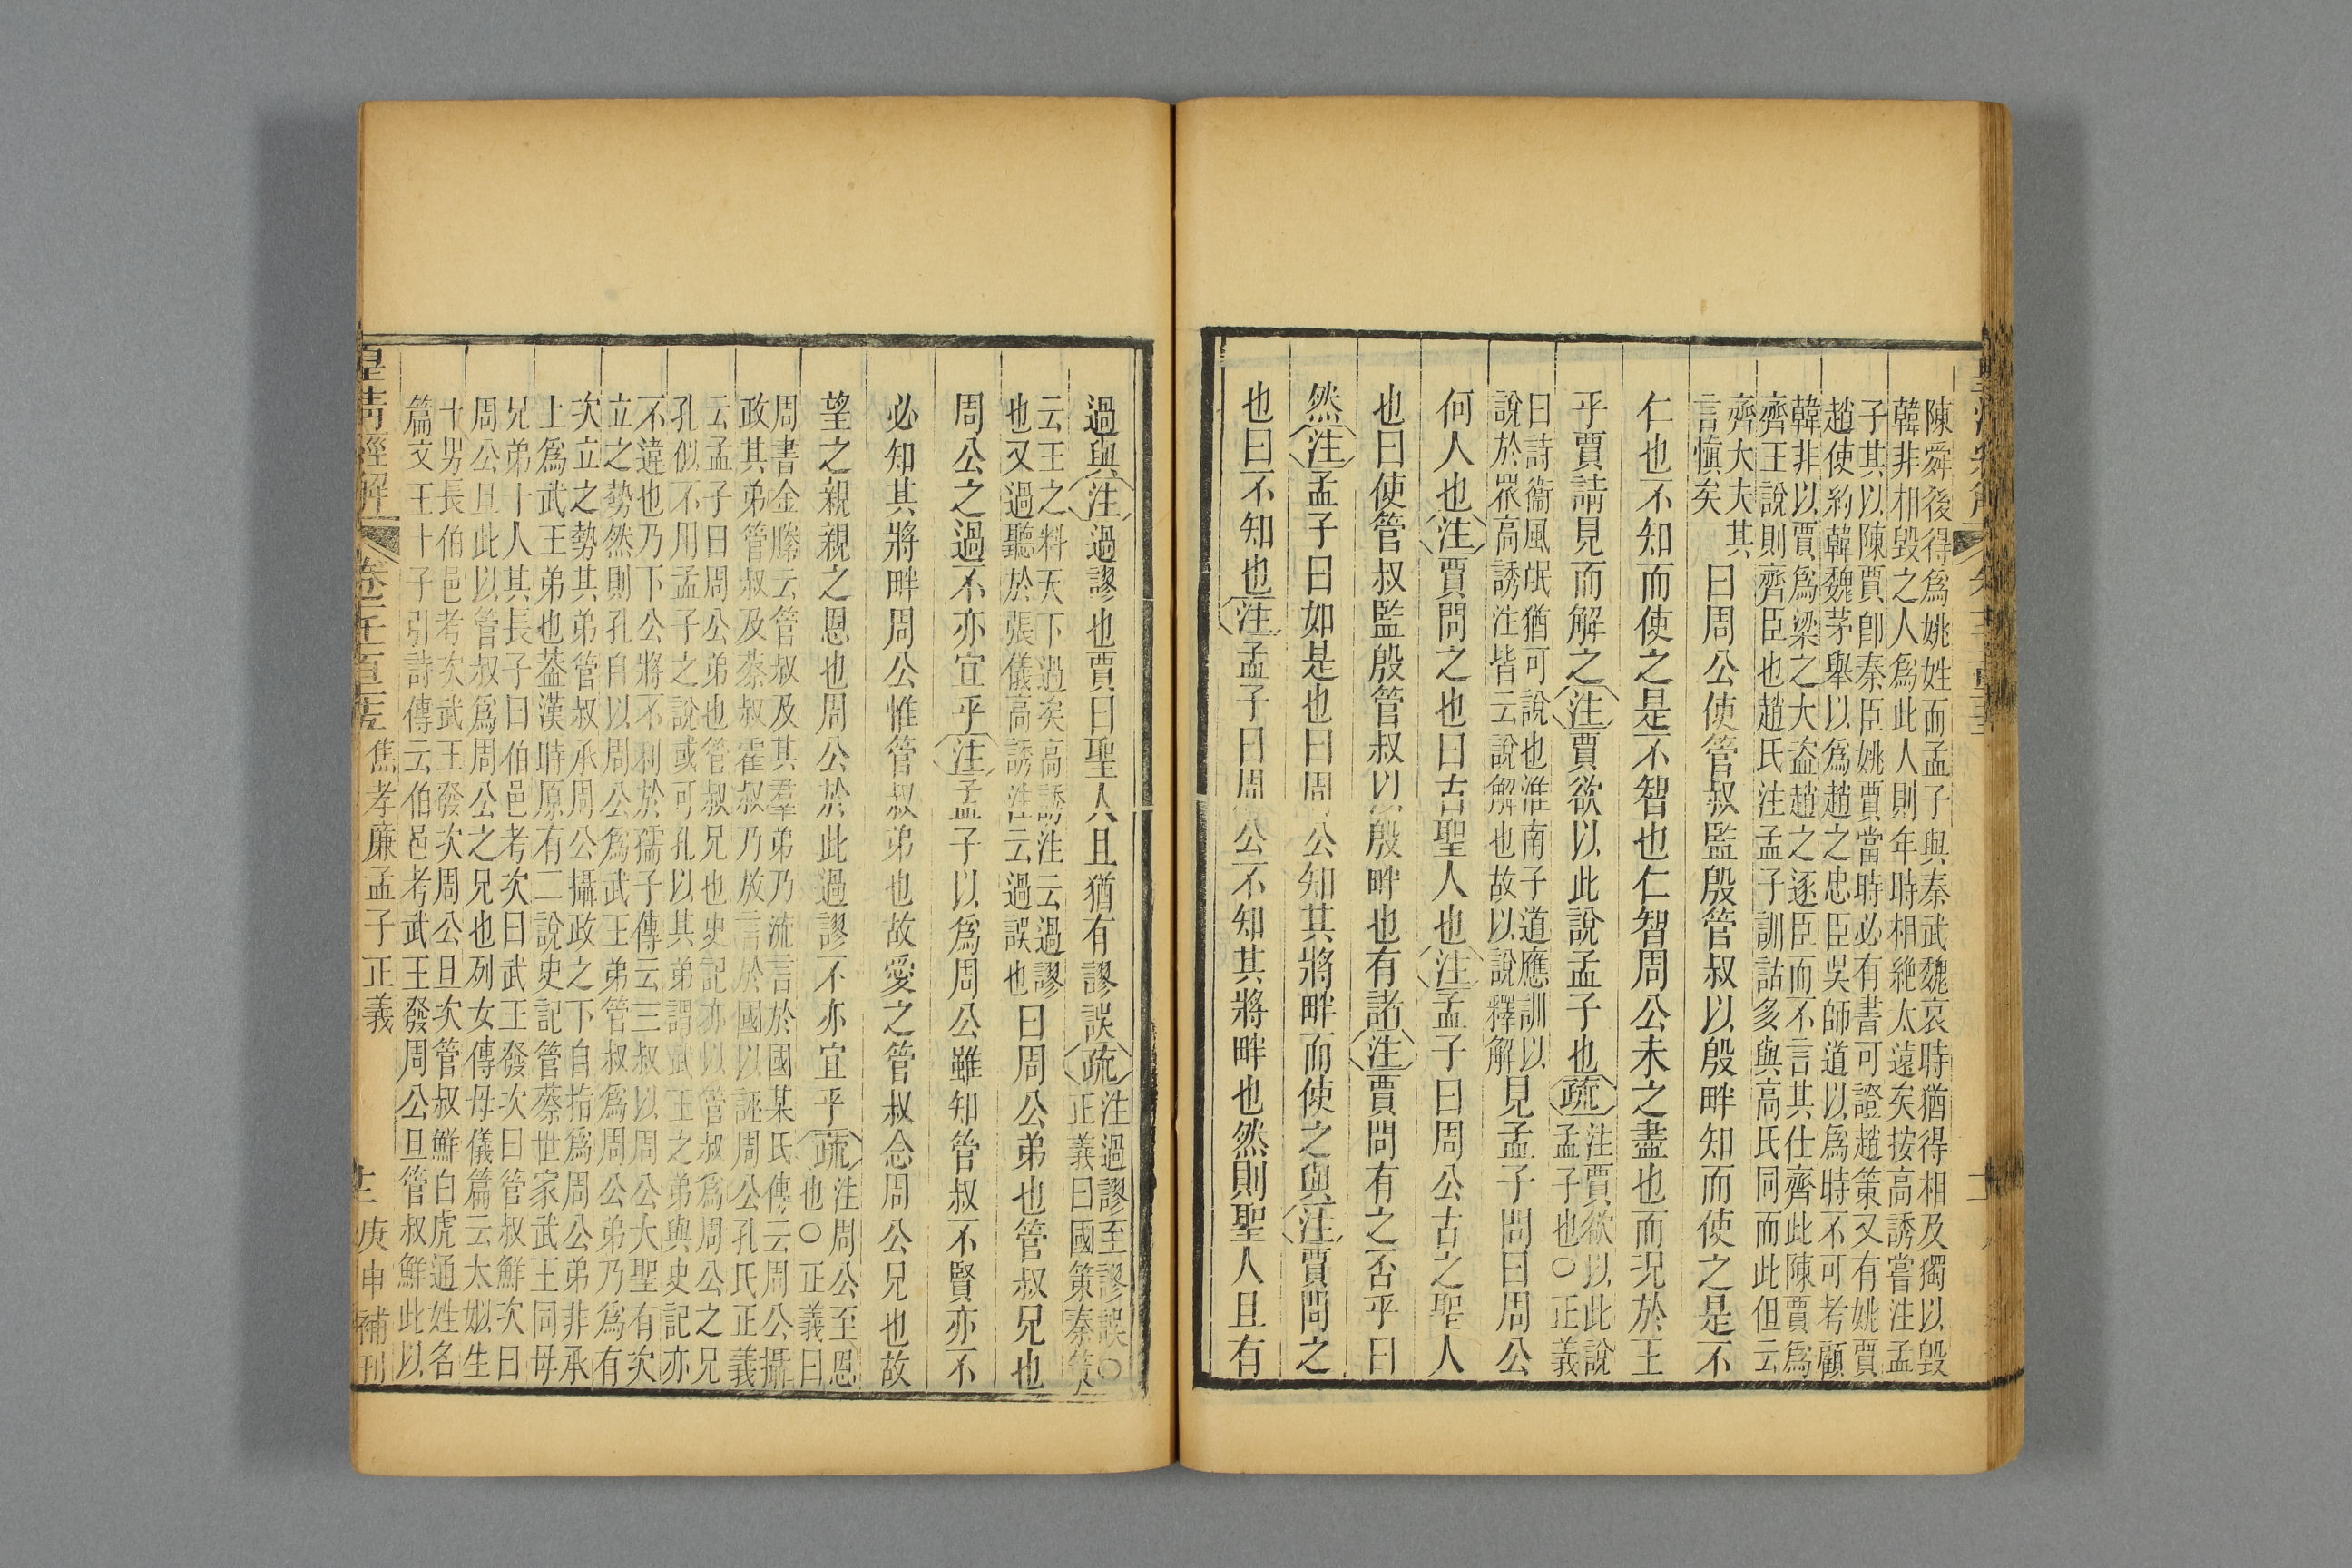 陳舜後得爲姚姓而孟子與秦武魏哀時猶得相及獨以毀
韓非相毀之人爲此人則年時相絶太遠矣按高誘嘗注孟
子其以陳賈卽秦臣姚賈當時必有書可證趙策又有姚賈
趙使約韓魏茅舉以爲趙之忠臣吳師道以爲時不可考顧
韓非以賈爲梁之大盗趙之逐臣而不言其仕齊此陳賈爲
齊王說則齊臣也趙氏注孟子訓詁多與高氏同而此但云
齊大夫其
言愼矣
曰周公使管叔監殷管叔以殷畔知而使之是不
仁也不知而使之是不智也仁智周公未之盡也而况於王
乎賈請見而解之注賈欲以此說孟子也疏
注賈欲以此說
孟子也○正義
曰詩衞風氓猶可說也淮南子道應訓以
說於眾高誘注皆云說解也故以說釋解
見孟子問曰周公
何人也注賈問之也曰古聖人也注孟子曰周公古之聖人
也曰使管叔監殷管叔以殷畔也有諸注賈問有之否乎曰
然注孟子曰如是也曰周公知其將畔而使之與注賈問之
也曰不知也注孟子曰周公不知其將畔也然則聖人且有
過與注過謬也賈曰聖人且猶有謬誤疏
注過謬至謬誤○
正義曰國策秦策
云王之料天下過矣高誘注云過謬
也又過聽於張儀高誘注云過誤也
曰周公弟也管叔兄也
周公之過不亦宜乎注孟子以爲周公雖知管叔不賢亦不
必知其將畔周公惟管叔弟也故愛之管叔念周公兄也故
望之親親之恩也周公於此過謬不亦宜乎疏
注周公至恩
也○正義曰
周書金縢云管叔及其羣弟乃流言於國某氏傳云周公攝
政其弟管叔及蔡叔霍叔乃放言於國以誣周公孔氏正義
云孟子曰周公弟也管叔兄也史記亦以管叔爲周公之兄
孔似不用孟子之說或可孔以其弟謂武王之弟與史記亦
不違也乃下公將不利於孺子傳云三叔以周公大聖有次
立之勢然則孔自以周公爲武王弟管叔爲周公弟乃爲有
次立之勢其弟管叔承周公攝政之下自指爲周公弟非承
上爲武王弟也葢漢時原有二說史記管蔡世家武王同母
兄弟十人其長子曰伯邑考次曰武王發次曰管叔鮮次曰
周公旦此以管叔爲周公之兄也列女傳母儀篇云太姒生
十男長伯邑考次武王發次周公旦次管叔鮮白虎通姓名
篇文王十子引詩傳云伯邑考武王發周公旦管叔鮮此以
皇清經解 焦孝廉孟子正義 庚申補刊